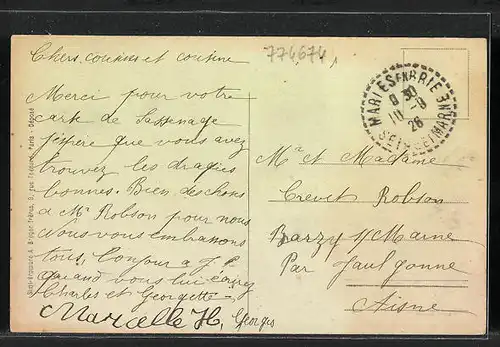 Chers cousins et cousine
Merci pour votre
carte de Sassenage
j'espère que vous avez
trouvez les dragées
bonnes. Bien des choses
à Mr Robson pour nous
Nous vous embrassons
tous. Bonjour a J.P.
quand vous lui écrirez
Charles et Georgette
Marcelle H, Georges
774674
MARLES EN BRIE
8 30
10 - 8
26
SEINE ET MARNE
Mr et Madame
Crevet Robson
Barzy s/ Marne
Par Jaulgonne
Aisne